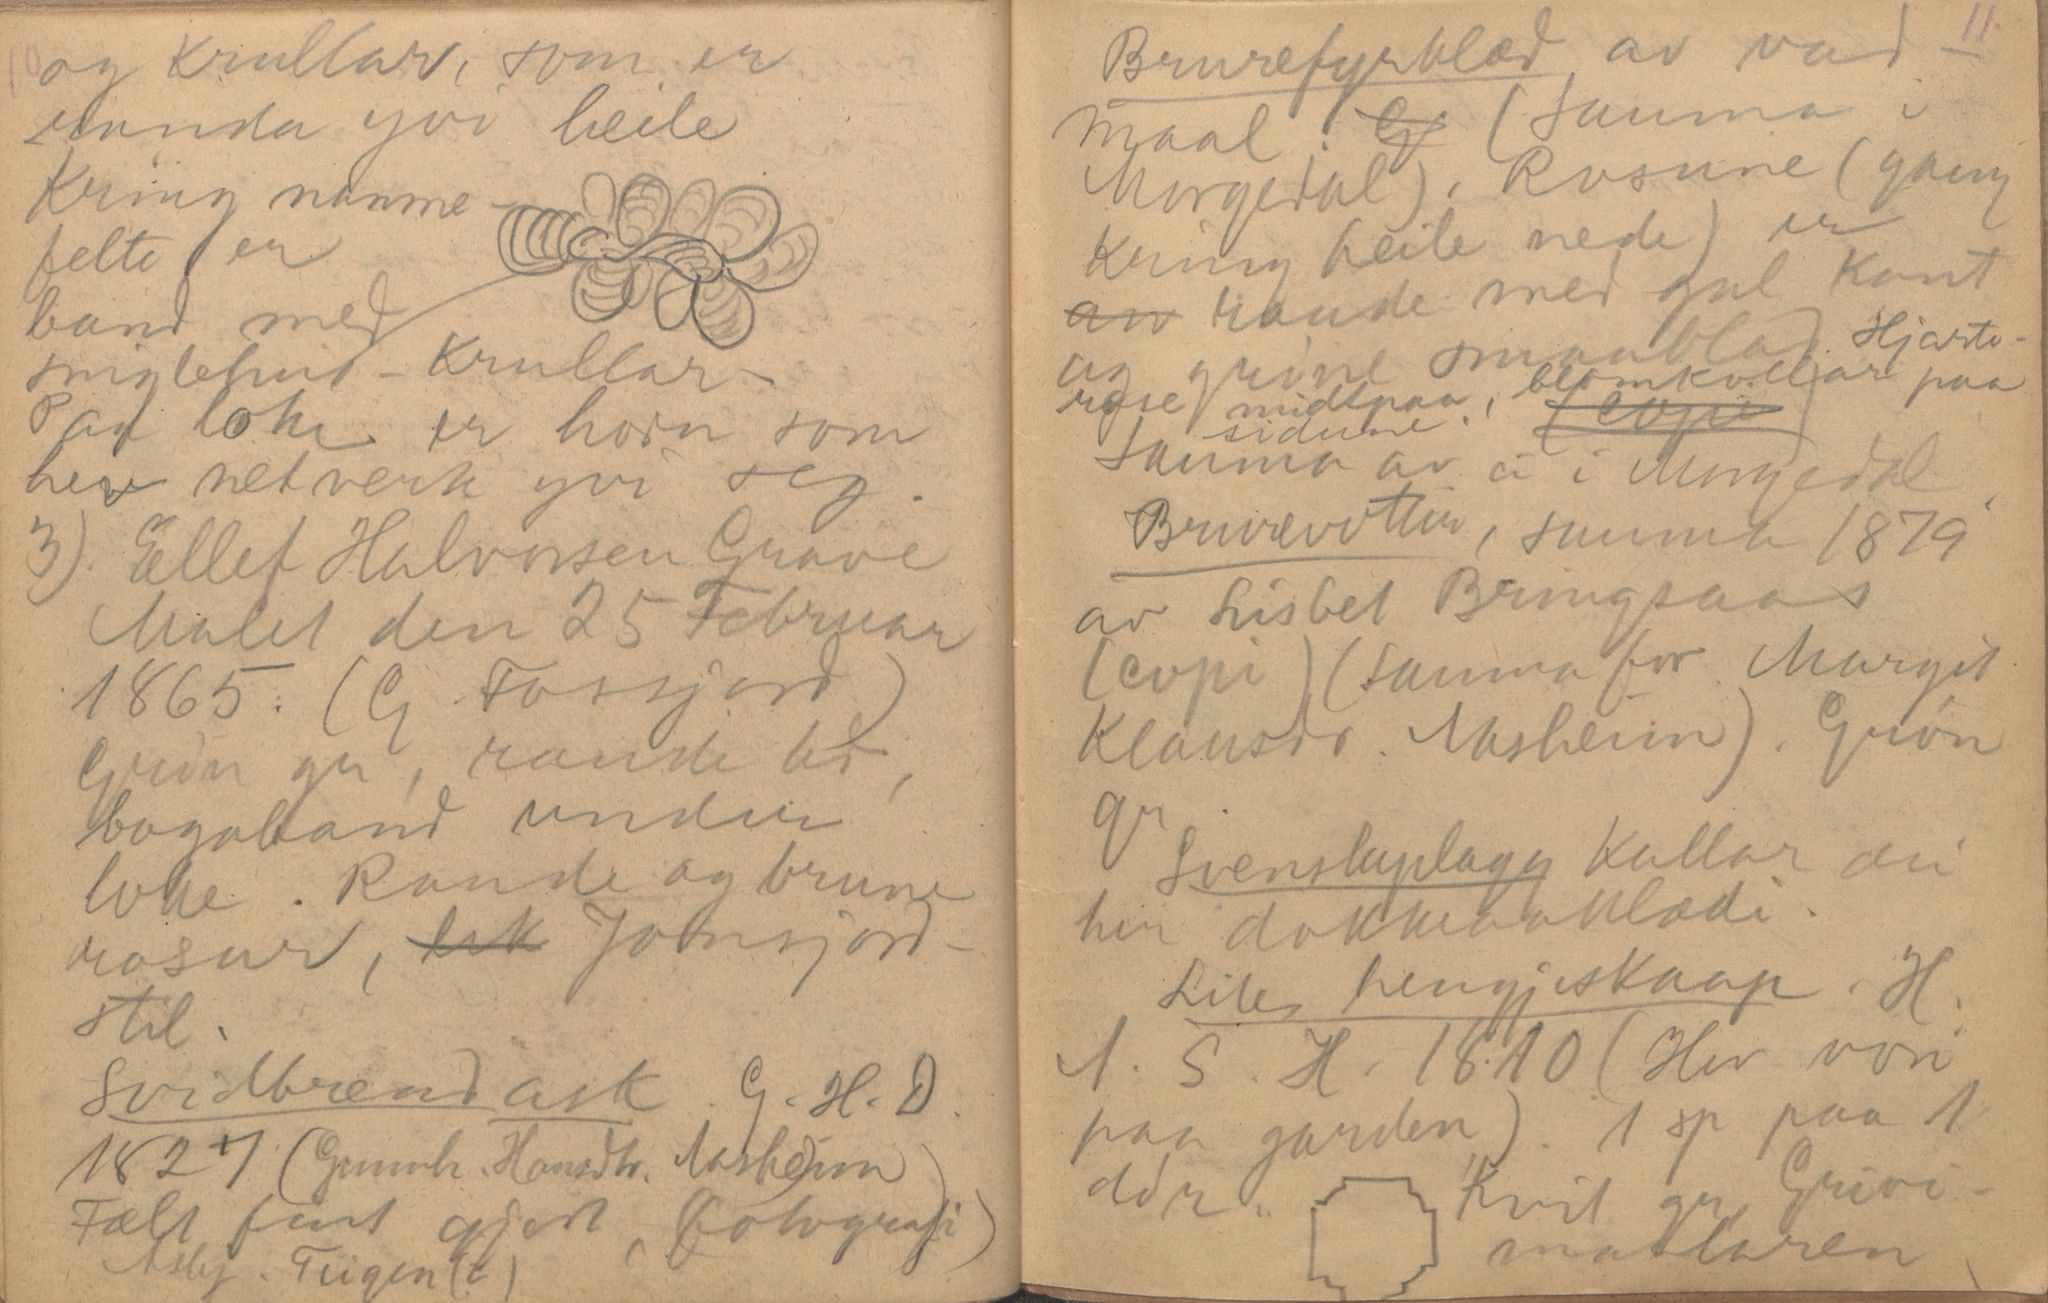 10
og krullar, som er
runda yvi heile
Kring namne-
felte er
band med
sniglehus-krullar-
Paa loke er horn som
hev netverk yvi seg.
3). Ellef Halvorsen Grave
Malet den 25 Februar
1865. (G Fossjord)
Grøn gr, raude bd,
bogaband under
loke. Raude og brune
rosur, Jonsjord-
stil.
Svidbrend ask. G. H. D.
1827 (Gunnh. Hansdtr. Aasheim)
Fælt fint gjort, (Fotografi)
11
Brurefyrklæd av vad-
maal. G (Sauma i
Morgedal). Rosune (gaung
kring heile nede) er
av raude med gul kant
og grøne smaablad. Hjarte-
rose midtpaa, blomkvillar paa
sidune. (copi)
Sauma av ei i Morgedal.
Bruravottur, sauma 1879
av Lisbet Bringsaas
(copi) (sauma for Margit
Klausdr. Aasheim). Grøn
gr.
Svenskuplagg kallar dei
her dokkeaaklædi.
Lite hengjeskaap. H.
A. S. H. 1810 (Hev vori
paa garden). 1 sp paa 1
dør. Kvit gr. Grivi-
maalaren